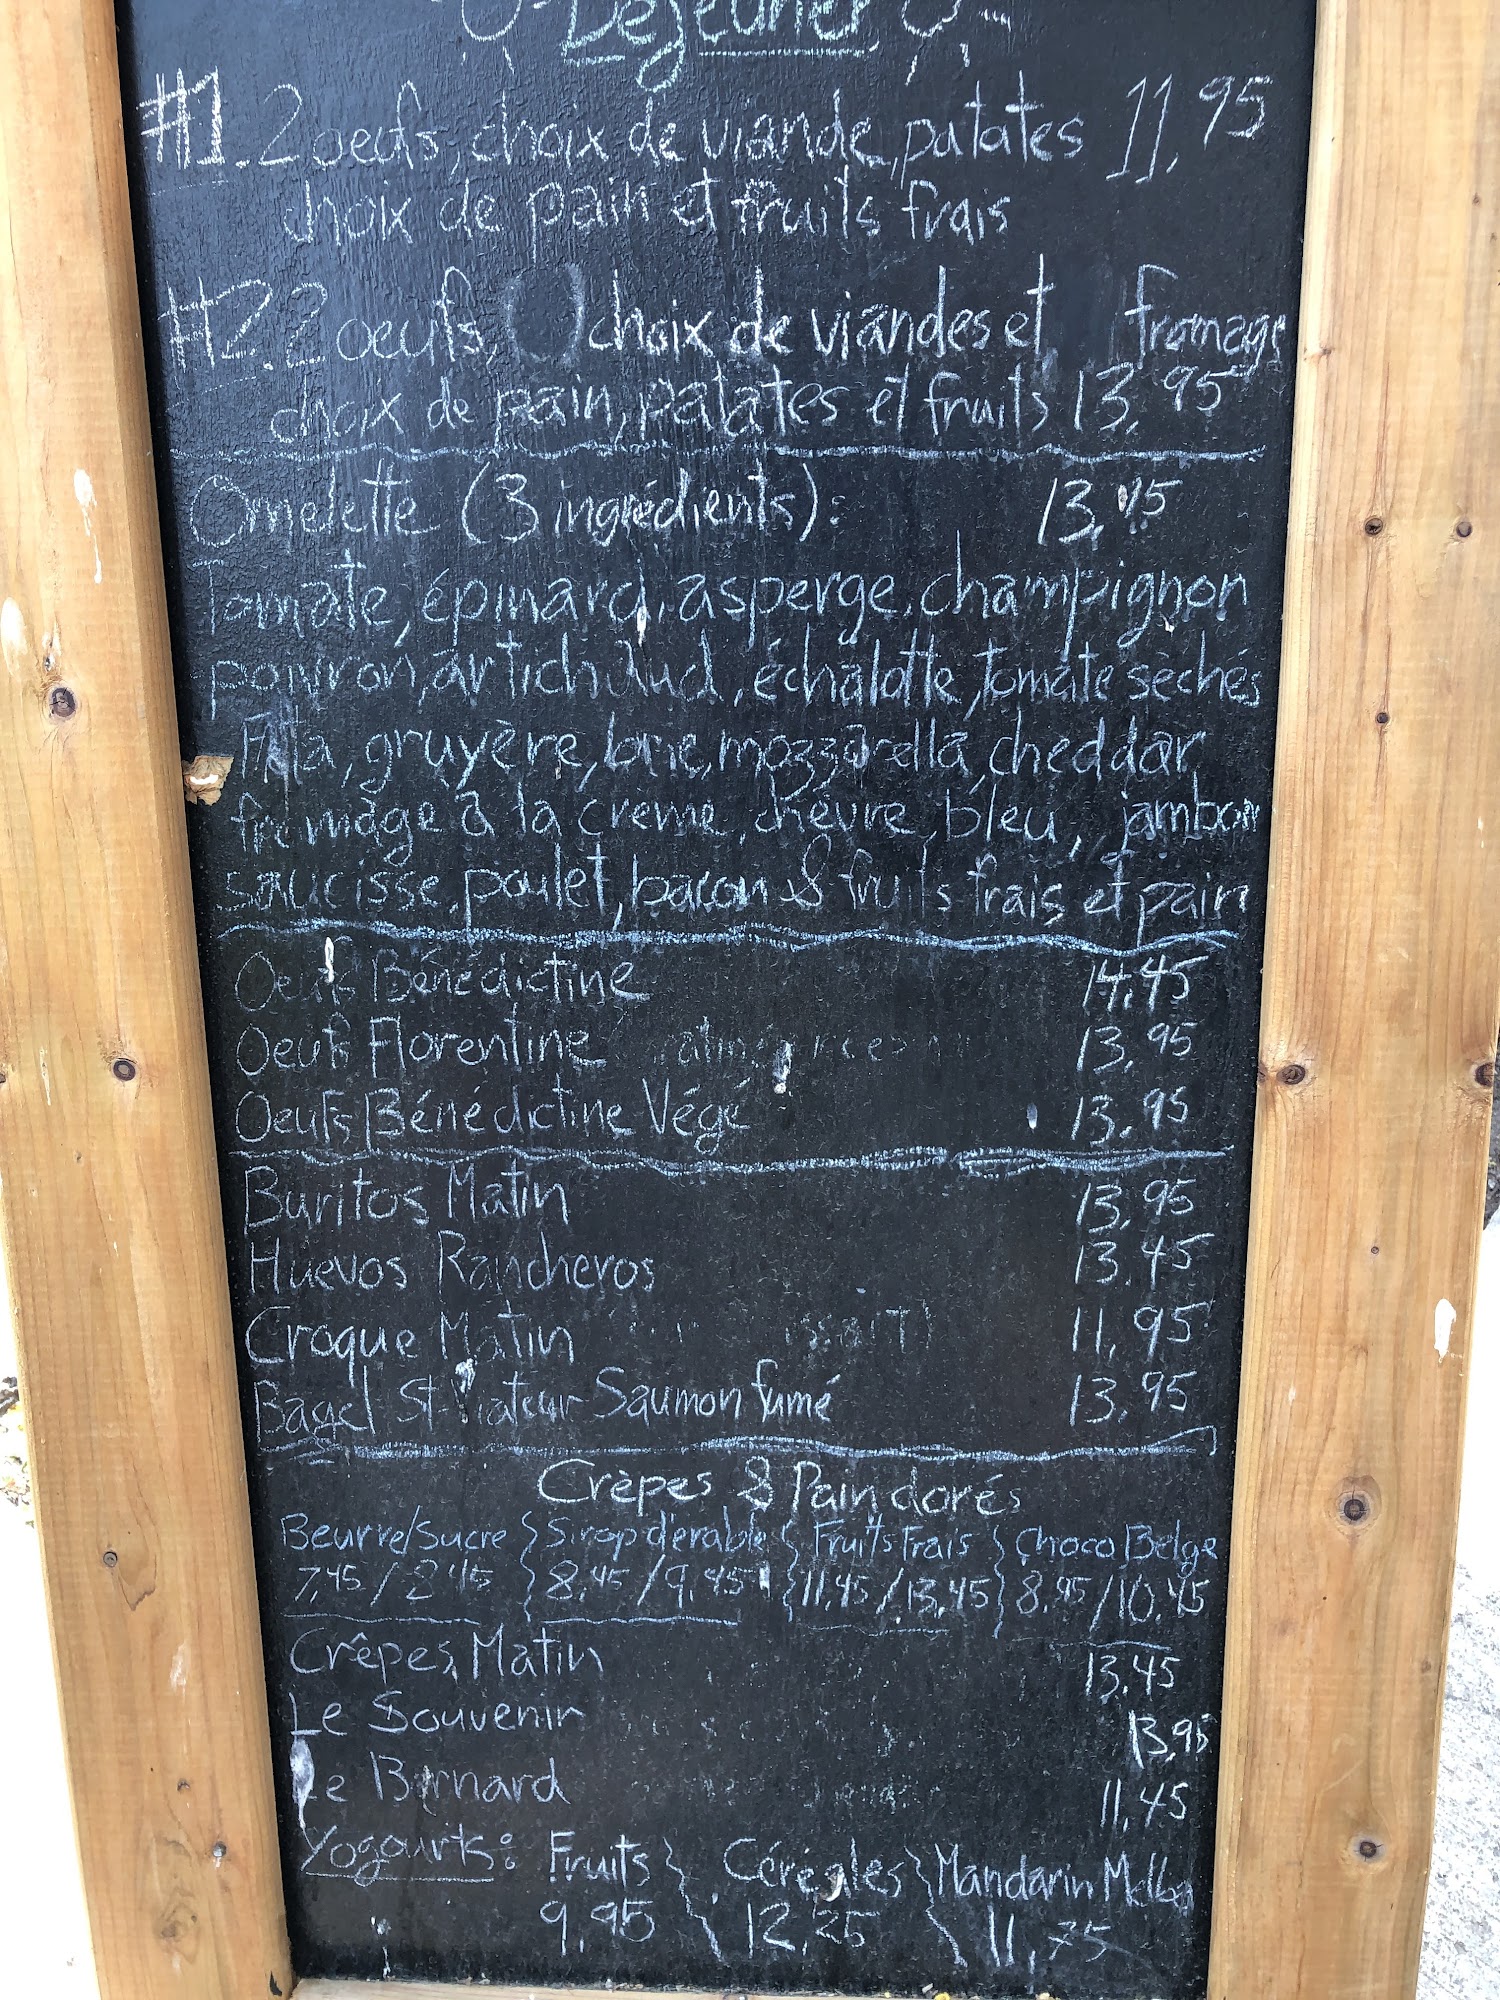 Déjeuner
#1. 2 oeufs, choix de viande, patates 11,95
choix de pain et fruits frais
#2. 2 oeufs, choix de viandes et fromage
choix de pain, patates et fruits 13,95
Omelette (3 ingrédients): 13,45
Tomate, épinard, asperge, champignon
poivron, artichaud, échalotte, tomate sèchés
Féta, gruyère, brie, mozzarella, cheddar
fromage à la creme, chèvre, bleu, jambon
saucisse, poulet, bacon & fruits frais et pain
Oeufs Bénédictine 14,45
Oeufs Florentine 13,95
Oeufs Bénédictine Végé 13,95
Buritos Matin 13,95
Huevos Rancheros 13,45
Croque Matin 11,95
Bagel St-Viateur Saumon fumé 13,95
Crèpes & Pain dorés
Beurre/Sucre } Sirop d'erable } Fruits Frais } Choco Belge
7,45 / 8,45 } 8,45 / 9,45 } 11,45 / 13,45 } 8,95 / 10,45
Crêpes Matin 13,45
Le Souvenir 13,95
Le Bernard 11,45
Yogourts: Fruits } Céréales } Mandarin Melba
9,95 } 12,25 } 11,75